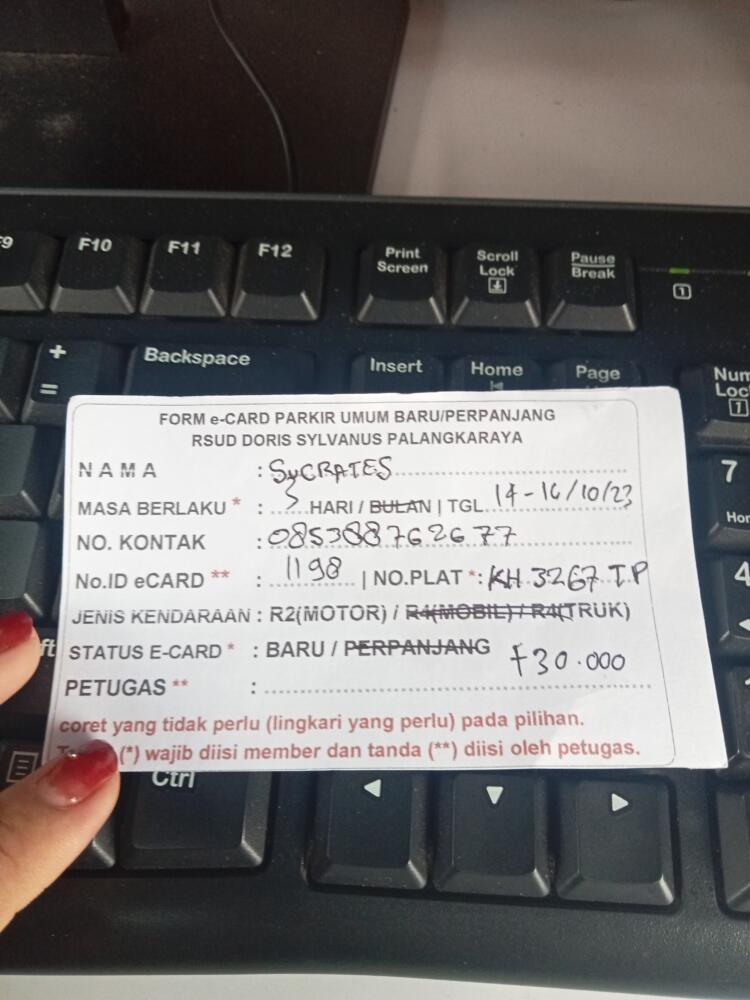 F9 F10 F11 F12 Print Screen Scroll Lock Pause Break
1
+ = Backspace Insert Home Page Num Loc 1
FORM e-CARD PARKIR UMUM BARU/PERPANJANG
RSUD DORIS SYLVANUS PALANGKARAYA
NAMA : SYCRATES
MASA BERLAKU * : 3 HARI / BULAN | TGL. 14-16/10/23
NO. KONTAK : 085388762677
No.ID eCARD ** : 1198 | NO.PLAT *: KH 3267 TP
JENIS KENDARAAN : R2(MOTOR) / R4(MOBIL) / R4(TRUK)
STATUS E-CARD * : BARU / PERPANJANG +30.000
PETUGAS ** :
coret yang tidak perlu (lingkari yang perlu) pada pilihan.
(*) wajib diisi member dan tanda (**) diisi oleh petugas.
7
Hom
4
ft
Ctrl